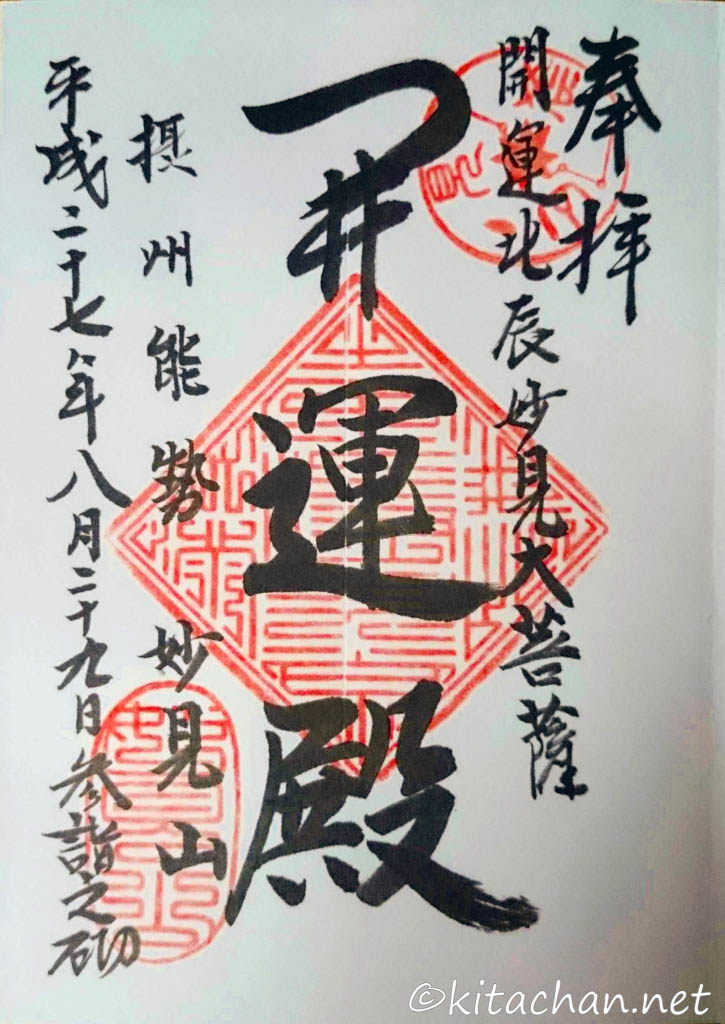 奉拝
開運北辰妙見大菩薩
開運殿
摂州能勢妙見山
平成二十七年八月二十九日参詣之砌
©kitachan.net